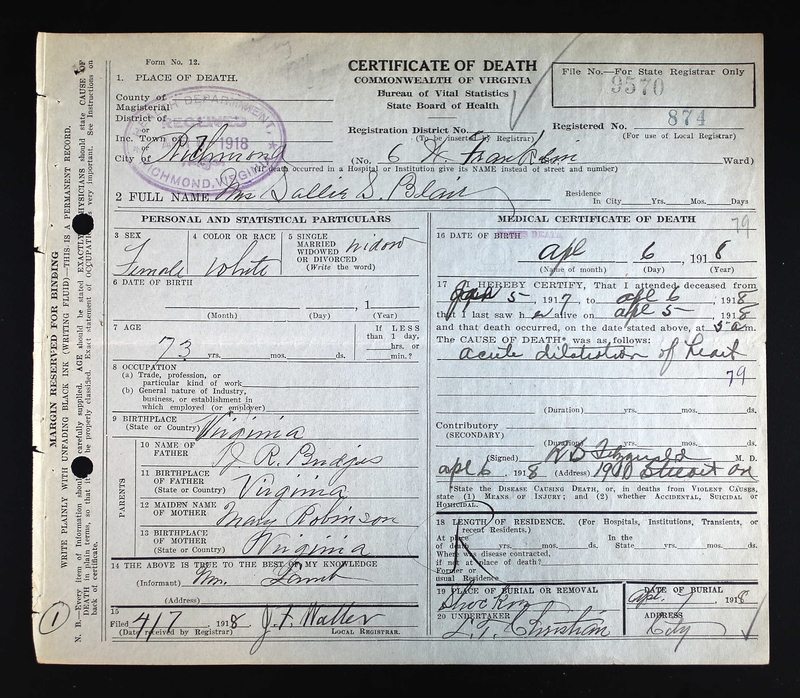 Form No. 12.
CERTIFICATE OF DEATH
COMMONWEALTH OF VIRGINIA
Bureau of Vital Statistics
State Board of Health
File No.—For State Registrar Only
9570
1. PLACE OF DEATH.
County of
Magisterial
District of
or
Inc. Town of
or
City of Richmond
HEALTH DEPARTMENT,
RECEIVED
7 1918
RICHMOND, VIRGINIA
Registration District No.
(To be inserted by Registrar)
Registered No. 874
(For use of Local Registrar)
(No. 6 W. Franklin Ward)
(If death occurred in a Hospital or Institution give its NAME instead of street and number)
2 FULL NAME Mrs Sallie S. Blair
Residence
In City Yrs. Mos. Days
PERSONAL AND STATISTICAL PARTICULARS
3 SEX
Female
4 COLOR OR RACE
White
5 SINGLE
MARRIED
WIDOWED
OR DIVORCED
(Write the word)
widow
6 DATE OF BIRTH
, 1
(Month) (Day) (Year)
7 AGE
73 yrs. mos. ds.
If LESS
than 1 day,
hrs. or
min.?
8 OCCUPATION
(a) Trade, profession, or
particular kind of work
(b) General nature of Industry,
business, or establishment in
which employed (or employer)
9 BIRTHPLACE
(State or Country) Virginia
PARENTS
10 NAME OF
FATHER R. Bridges
11 BIRTHPLACE
OF FATHER
(State or Country) Virginia
12 MAIDEN NAME
OF MOTHER Mary Robinson
13 BIRTHPLACE
OF MOTHER
(State or Country) Virginia
14 THE ABOVE IS TRUE TO THE BEST OF MY KNOWLEDGE
(Informant) Wm. Lamb
(Address)
15
Filed 4/7 , 1918 J. F. Walter
(Date received by Registrar) LOCAL REGISTRAR.
MEDICAL CERTIFICATE OF DEATH
79
16 DATE OF BIRTH
DEATH
Apl 6 , 1918
(Name of month) (Day) (Year)
17 I HEREBY CERTIFY, That I attended deceased from
5 , 1917, to apl 6 , 1918
that I last saw her alive on apl 5 , 1918
and that death occurred, on the date stated above, at 5 a m.
The CAUSE OF DEATH* was as follows:
acute dilatation of heart
79
(Duration) yrs. mos. ds.
Contributory
(SECONDARY)
(Duration) yrs. mos. ds.
(Signed) Fitzgerald M. D.
apl 6 , 1918 (Address) 1900 Stuart
*State the DISEASE CAUSING DEATH, or, in deaths from VIOLENT CAUSES,
state (1) MEANS OF INJURY; and (2) whether ACCIDENTAL, SUICIDAL or
HOMICIDAL.
18 LENGTH OF RESIDENCE. (For Hospitals, Institutions, Transients, or
recent Residents.)
At place In the
of death yrs. mos. ds. State yrs. mos. ds.
Where was disease contracted,
if not at place of death?
Former or
usual Residence
19 PLACE OF BURIAL OR REMOVAL
Shockoe
DATE OF BURIAL
Apl. 7 1918
20 UNDERTAKER
L. T. Christian
ADDRESS
City
MARGIN RESERVED FOR BINDING
WRITE PLAINLY WITH UNFADING BLACK INK (WRITING FLUID)—THIS IS A PERMANENT RECORD.
N. B.—Every item of Information should be carefully supplied. AGE should be stated EXACTLY. PHYSICIANS should state CAUSE OF
DEATH in plain terms, so that it may be properly classified. Exact statement of OCCUPATION is very important. See Instructions on
back of certificate.
1